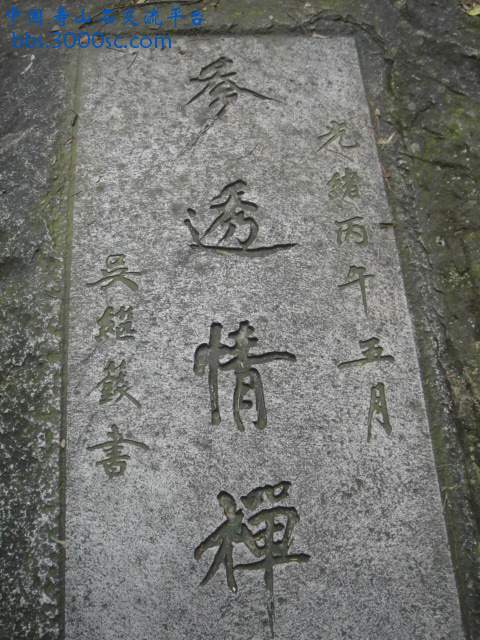 中国寿山石交流平台
bbs.3000sc.com
光緒丙午五月
參透情禪
吳
書